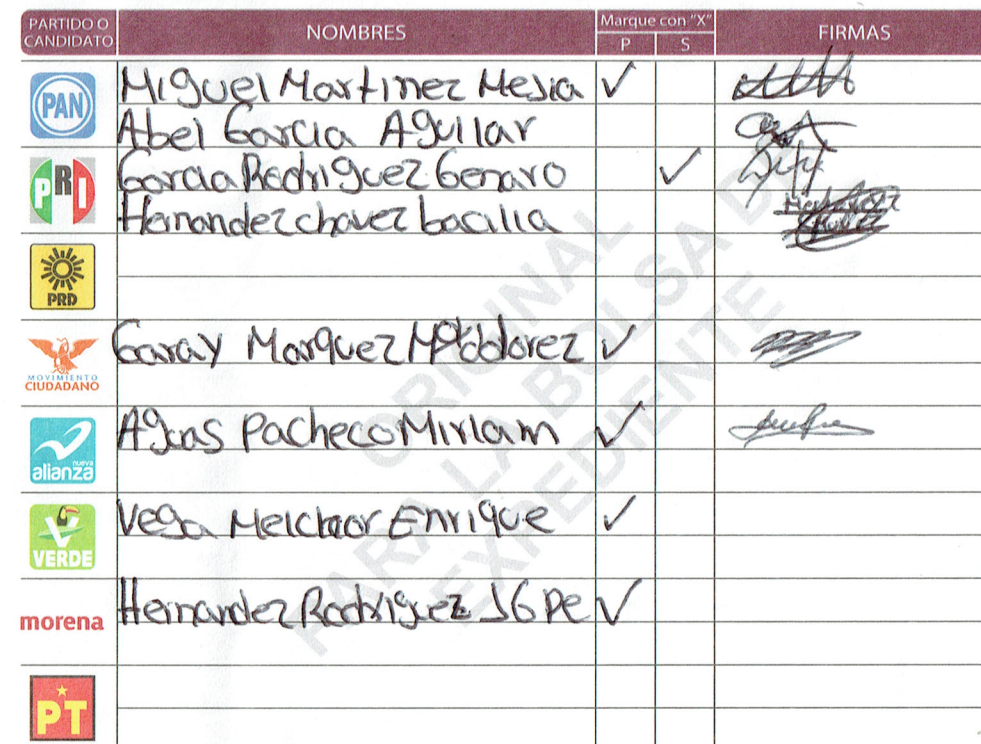 PARTIDO O CANDIDATO NOMBRES Marque con "X" FIRMAS
P S
PAN Miguel Martinez Mejia ✓
Abel Garcia Aguilar
PRI Garcia Rodriguez Genaro ✓
Hernandez chavez bacilia
PRD
MOVIMIENTO CIUDADANO Garay Marquez Mª dolorez ✓
nueva alianza Pacheco Miriam ✓
VERDE Vega Melchor Enrique ✓
morena Hernandez Rodriguez ✓
PT
ORIGINAL
PARA LA BOLSA DE
EXPEDIENTE